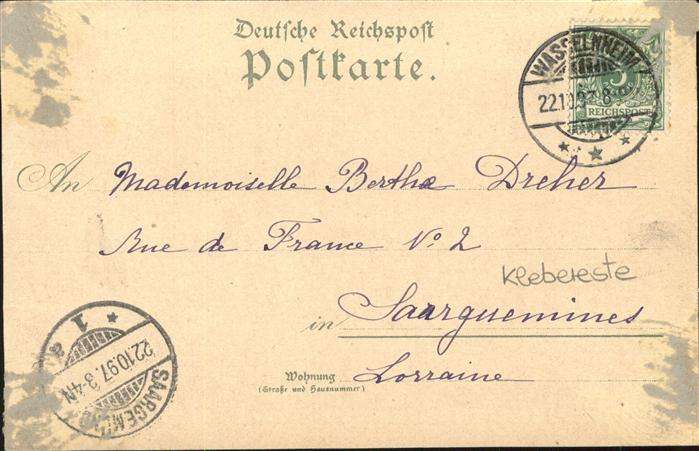 Deutsche Reichspost
Postkarte.
WASSELNHEIM
22.10.97
REICHSPOST
An Mademoiselle Berthe Dreher
Rue de France No 2
Klebereste
in Saarguemines
Wohnung
(Straße und Hausnummer)
Lorraine
1
22.10.97.3-4N